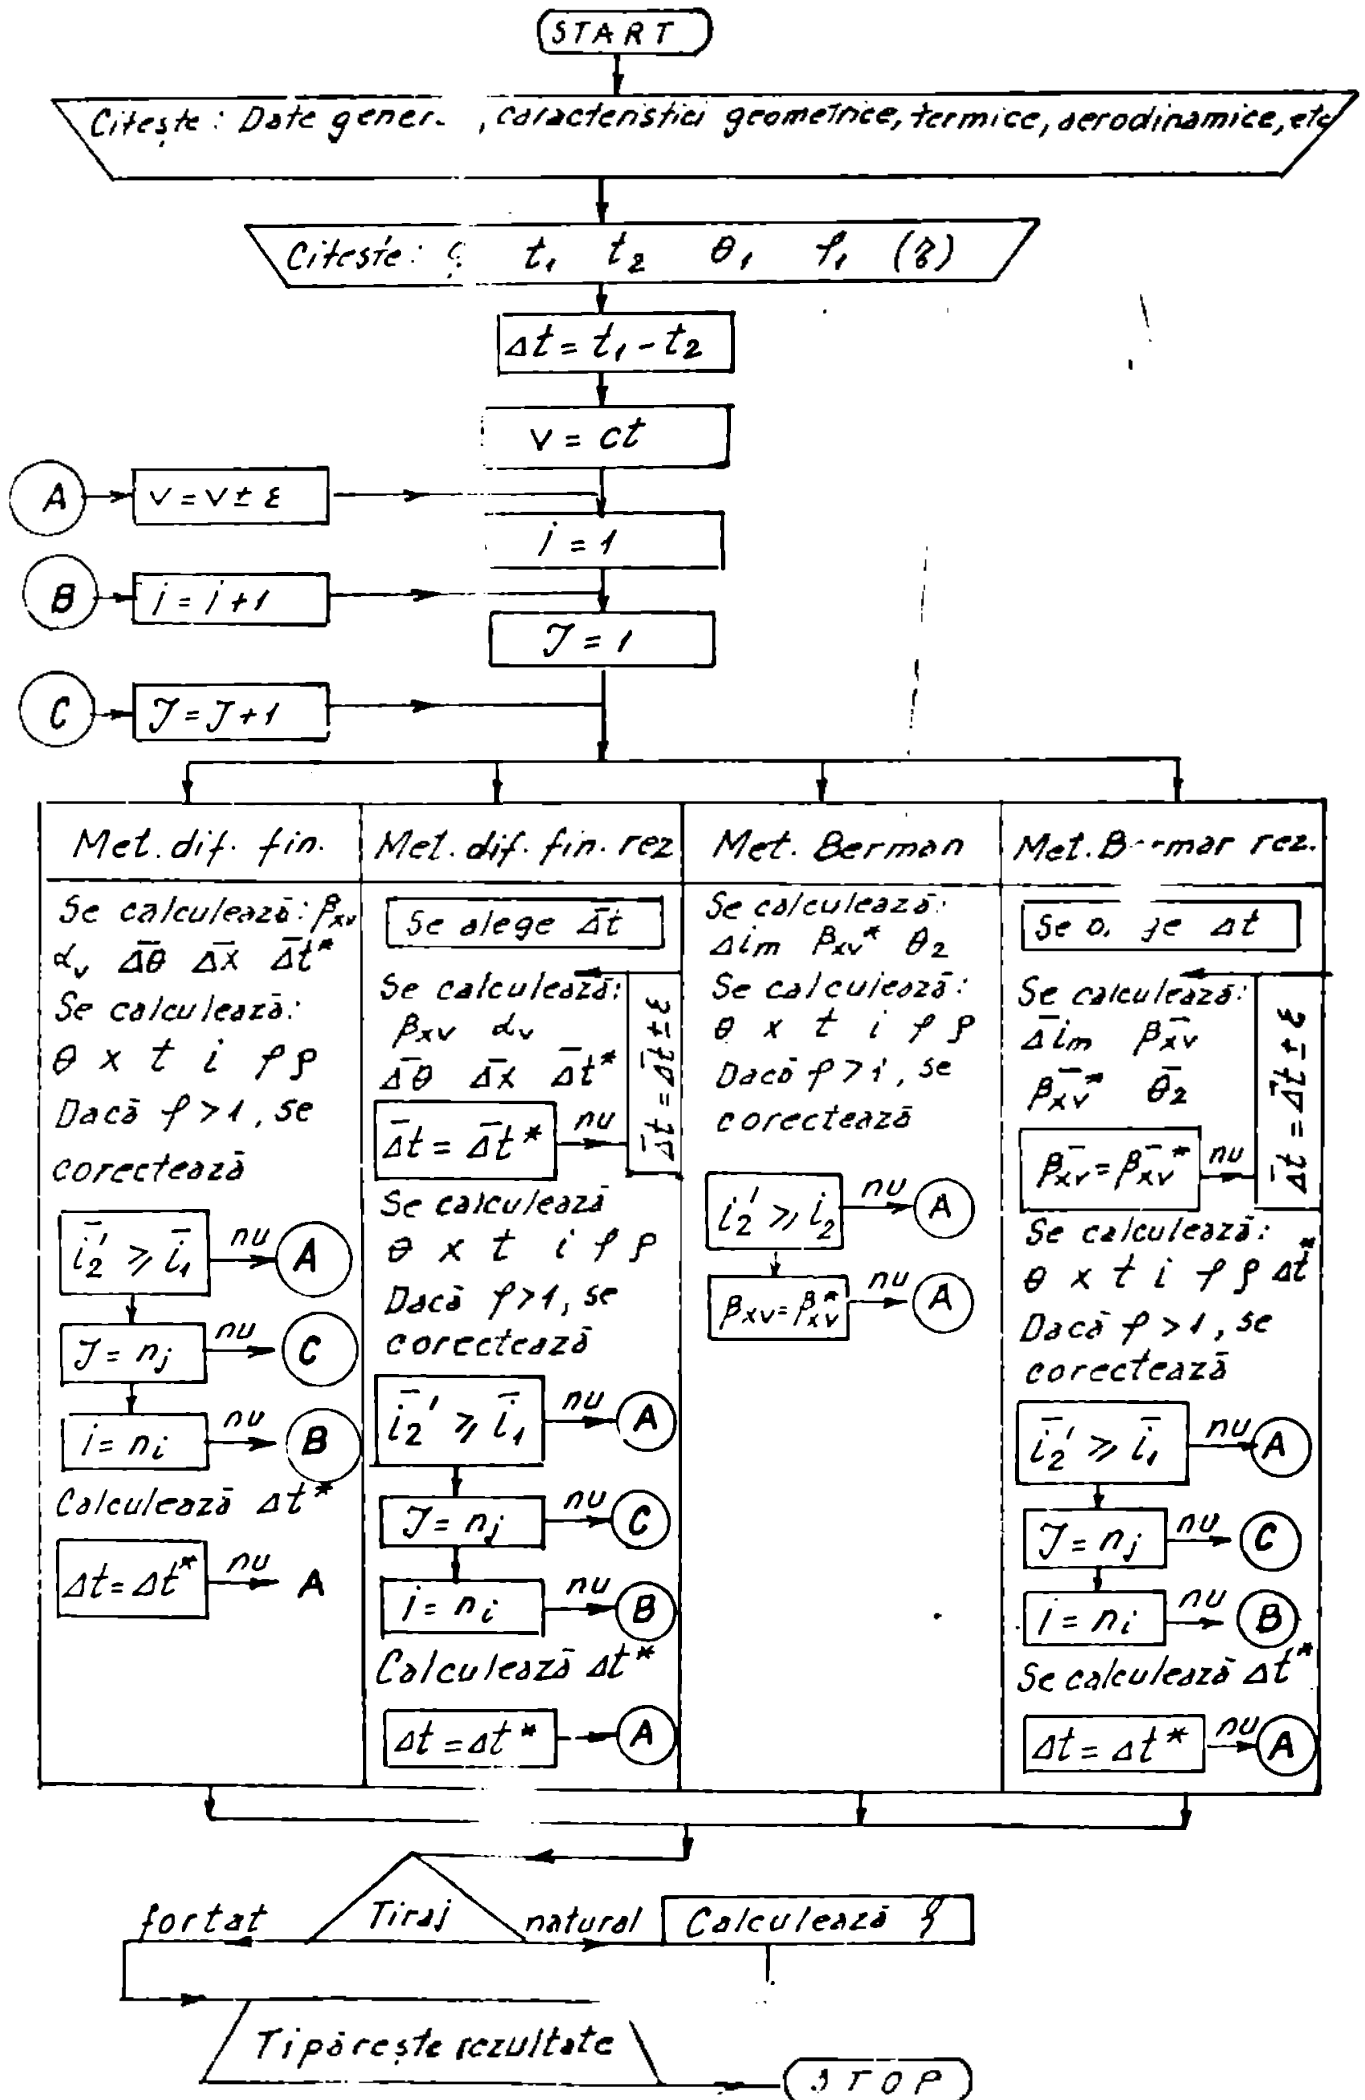 START
Citește: Date gener , caracteristici geometrice, termice, aerodinamice, etc
Citește: t₁ t₂ θ₁ φ₁ (ξ)
Δt = t₁ - t₂
v = ct
A
v = v ± ε
i = 1
B
i = i+1
J = 1
C
J = J+1
Met. dif. fin.
Se calculează: βxv
αv Δ̄θ Δ̄x Δ̄t*
Se calculează:
θ x t i φ ρ
Dacă φ>1, se
corectează
ī₂' ⩾ ī₁ nu A
J = nj nu C
i = ni nu B
Calculează Δt*
Δt = Δt* nu A
Met. dif. fin. rez
Se alege Δ̄t
Se calculează:
βxv αv
Δ̄θ Δ̄x Δ̄t*
Δ̄t = Δ̄t* nu
Δ̄t = Δ̄t ± ε
Se calculează
θ x t i φ ρ
Dacă φ>1, se
corectează
ī₂' ⩾ ī₁ nu A
J = nj nu C
i = ni nu B
Calculează Δt*
Δt = Δt* A
Met. Berman
Se calculează:
Δim βxv* θ₂
Se calculează:
θ x t i φ ρ
Dacă φ>1, se
corectează
i₂' ⩾ i₂ nu A
βxv = βxv* nu A
Met. rez.
Δt
Se calculează:
Δ̄im β̄xv
β̄xv* θ̄₂
β̄xv = β̄xv* nu
Δ̄t = Δ̄t ± ε
Se calculează:
θ x t i φ ρ Δt*
Dacă φ>1, se
corectează
ī₂' ⩾ ī₁ nu A
J = nj nu C
i = ni nu B
Se calculează Δt*
Δt = Δt* nu A
fortat Tiraj natural Calculează ξ
Tipărește rezultate
STOP